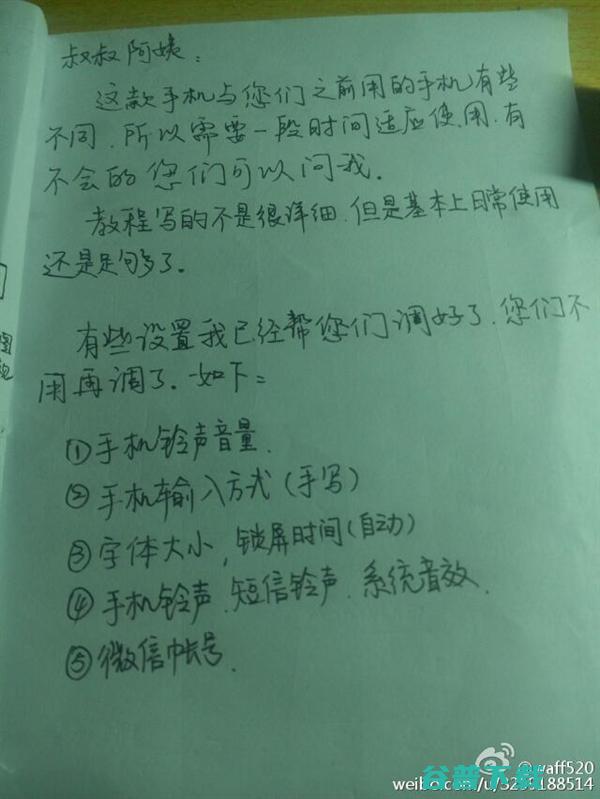 叔叔阿姨：
这款手机与您们之前用的手机有些
不同.所以需要一段时间适应使用.有
不会的您们可以问我.
教程写的不是很详细.但是基本上日常使用
还是足够了.
有些设置我已经帮您们调好了.您们不
用再调了.如下：
①手机铃声音量.
②手机输入方式(手写)
③字体大小,锁屏时间(自动)
④手机铃声.短信铃声.系统音效.
⑤微信帐号.
谷普下载
weibo.com/u/3239188514